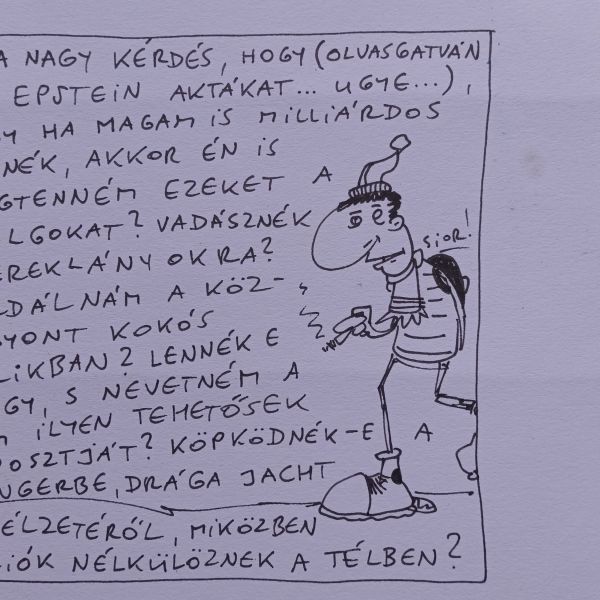 A NAGY KÉRDÉS, HOGY (OLVASGATVÁN
EPSTEIN AKTÁKAT... UGYE...),
GY HA MAGAM IS MILLIÁRDOS
NÉK, AKKOR ÉN IS
GTENNÉM EZEKET A
LGOKAT? VADÁSZNÉK
EREKLÁNYOKRA?
LDÁLNÁM A KÖZ-
GYONT KOKÓS
LIKBAN? LENNÉK E
GY, S NEVETNÉM A
ILYEN TEHETŐSEK
OSZTJÁT? KÖPKÖDNÉK-E A
UGERBE, DRÁGA JACHT
ÉLZETÉRŐL, MIKÖZBEN
IÓK NÉLKÜLÖZNEK A TÉLBEN?
SIOR!